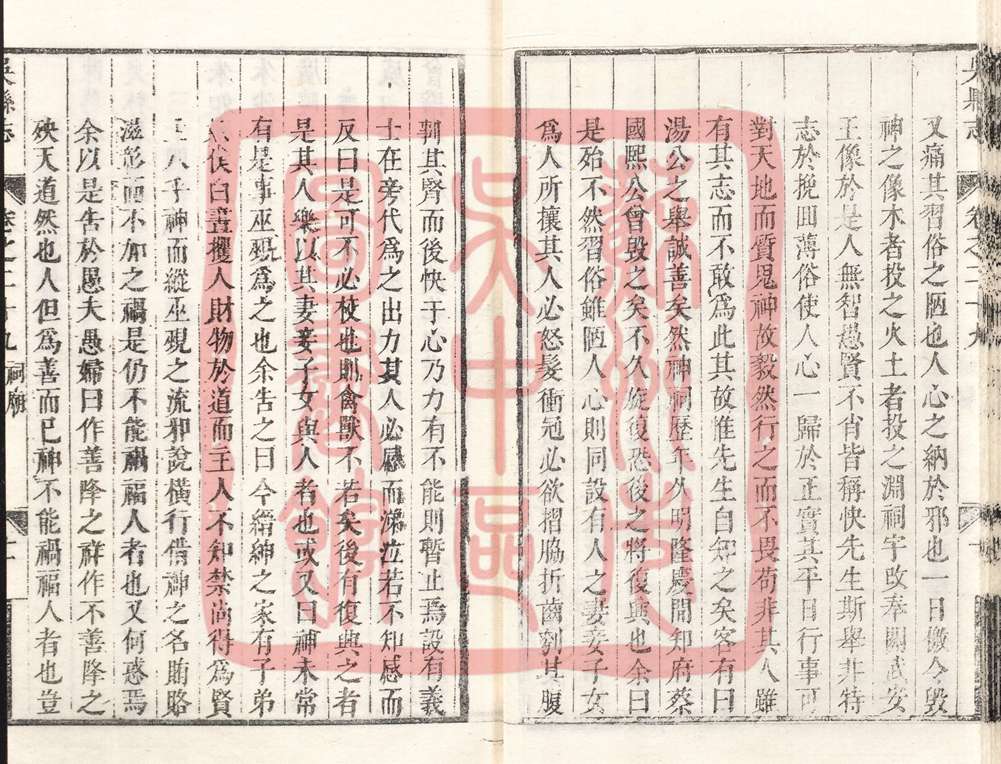 又痛其習俗之陋也人心之納於邪也一日檄令毀
神之像木者投之火土者投之淵祠宇改奉關武安
王像於是人無智愚賢不肖皆稱快先生斯舉非特
志於挽回薄俗使人心一歸於正實其平日行事可
對天地而質鬼神故毅然行之而不畏苟非其人雖
有其志而不敢爲此其故惟先生自知之矣客有曰
湯公之舉誠善矣然神祠歷年久明隆慶間知府蔡
國熙公曾毀之矣不久旋復恐後之將復興也余曰
是殆不然習俗雖陋人心則同設有人之妻妾子女
爲人所攘其人必怒髮衝冠必欲摺脇折齒刳其腹
㓲其膂而後快于心乃力有不能則暫止焉設有義
士在旁代爲之出力其人必感而涕泣若不知感而
反曰是可不必校也則禽獸不若矣後有復興之者
是其人樂以其妻妾子女與人者也或又曰神未常
有是事巫覡爲之也余告之曰今縉紳之家有子弟
僕白晝攫人財物於道而主人不知禁尚得爲賢
主人乎神而縱巫覡之流邪說橫行借神之名賄賂
滋彰而不加之禍是仍不能禍福人者也又何惑焉
余以是告於愚夫愚婦曰作善降之祥作不善降之
殃天道然也人但爲善而已神不能禍福人者也豈
吳縣志
卷之二十九
祠廟
十
蘇州吳中區圖書館